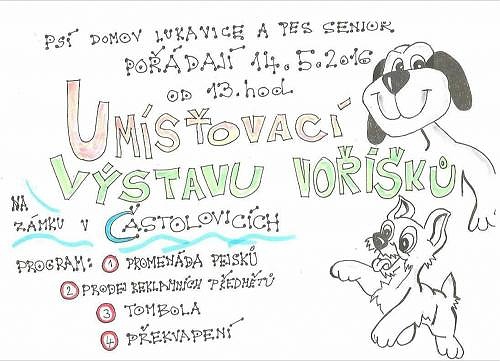 PSÍ DOMOV LUKAVICE A PES SENIOR
POŘÁDAJÍ 14.5.2016
OD 13.hod.
UMÍSŤOVACÍ
VÝSTAVU VOŘÍŠKŮ
NA
ZÁMKU V ČÁSTOLOVICÍCH
PROGRAM: 1 PROMENÁDA PEJSKŮ
2 PRODEJ REKLAMNÍCH PŘEDMĚTŮ
3 TOMBOLA
4 PŘEKVAPENÍ